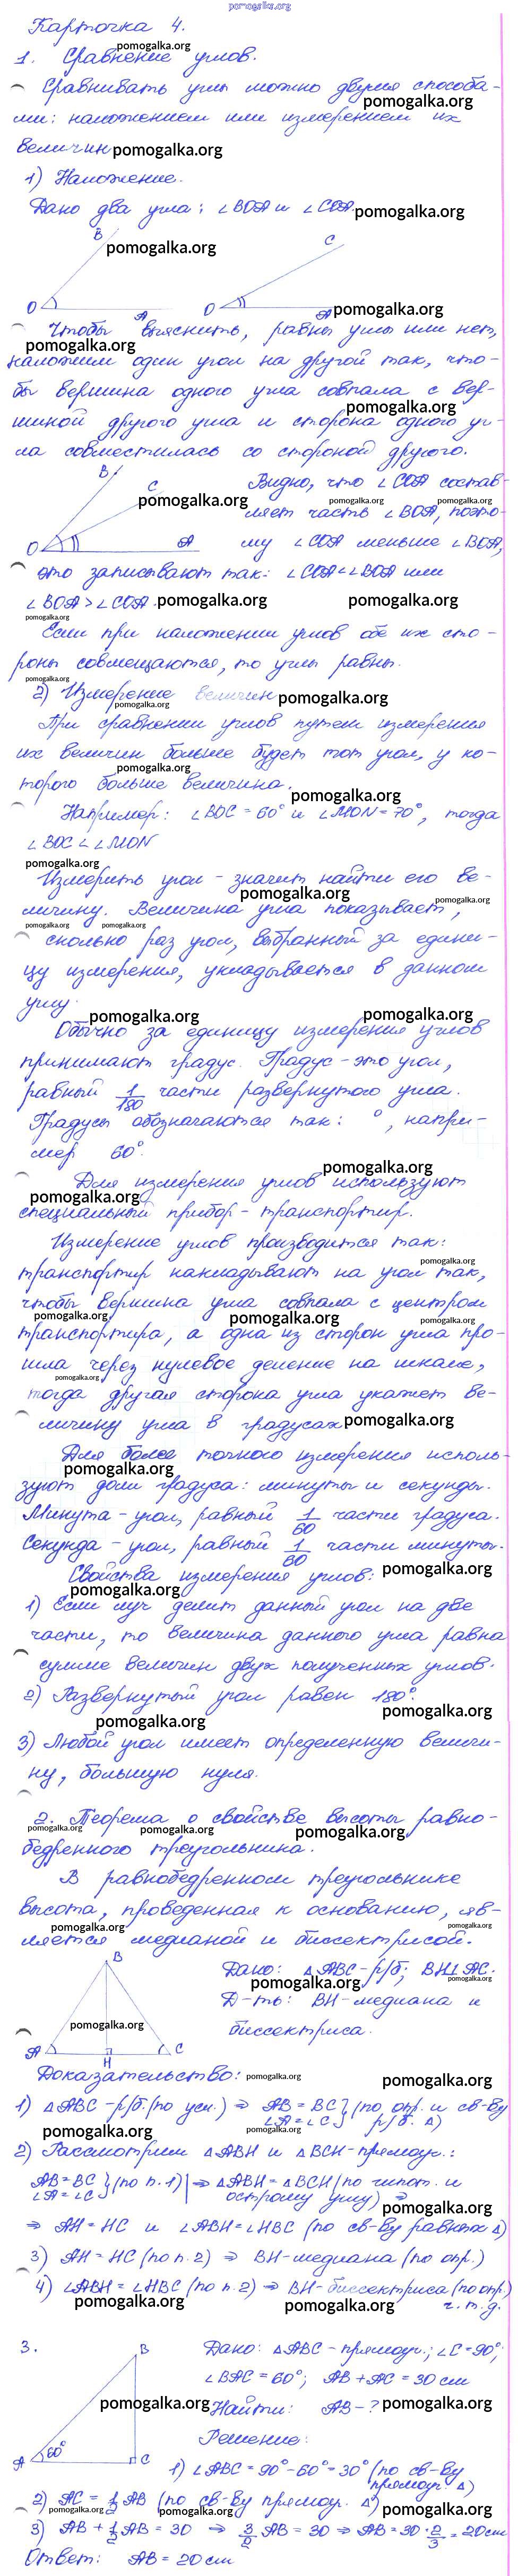 pomogalka.org
Карточка 4.
1. Сравнение углов.
Сравнивать углы можно двумя способа-
ми: наложением или измерением их
величин
1) Наложение.
Дано два угла: ∠BOA и ∠COA.
B
C
O
A
O
A
Чтобы выяснить, равны углы или нет,
наложим один угол на другой так, что-
бы вершина одного угла совпала с вер-
шиной другого угла и сторона одного уг-
ла совместилась со стороной другого.
B
C
O
A
Видно, что ∠COA состав-
ляет часть ∠BOA, поэто-
му ∠COA меньше ∠BOA,
это записывают так: ∠COA < ∠BOA или
∠BOA > ∠COA.
Если при наложении углов обе их сто-
роны совмещаются, то углы равны.
2) Измерение величин
При сравнении углов путем измерения
их величин больше будет тот угол, у ко-
торого больше величина.
Например: ∠BOC = 60° и ∠MON = 70°, тогда
∠BOC < ∠MON
Измерить угол - значит найти его ве-
личину. Величина угла показывает,
сколько раз угол, выбранный за едини-
цу измерения, укладывается в данном
углу.
Обычно за единицу измерения углов
принимают градус. Градус - это угол,
равный 1/180 части развернутого угла.
Градусы обозначаются так: °, напри-
мер 60°.
Для измерения углов используют
специальный прибор - транспортир.
Измерение углов производится так:
транспортир накладывают на угол так,
чтобы вершина угла совпала с центром
транспортира, а одна из сторон угла про-
шла через нулевое деление на шкале,
тогда другая сторона угла укажет ве-
личину угла в градусах
Для более точного измерения исполь-
зуют доли градуса: минуты и секунды.
Минута - угол, равный 1/60 части градуса.
Секунда - угол, равный 1/60 части минуты.
Свойства измерения углов:
1) Если луч делит данный угол на две
части, то величина данного угла равна
сумме величин двух полученных углов.
2) Развернутый угол равен 180°.
3) Любой угол имеет определенную величи-
ну, большую нуля.
2. Теорема о свойстве высоты равно-
бедренного треугольника.
В равнобедренном треугольнике
высота, проведенная к основанию, яв-
ляется медианой и биссектрисой.
B
A
H
C
Дано: △ABC - р/б; BH⊥AC.
Д-ть: BH - медиана и
биссектриса.
Доказательство:
1) △ABC - р/б (по усл.) ⇒ AB = BC } (по опр. и св-ву
∠A = ∠C } р/б. △)
2) Рассмотрим △ABH и △BCH - прямоуг.:
AB = BC } (по п. 1) | ⇒ △ABH = △BCH (по гипот. и
∠A = ∠C } острому углу) ⇒
⇒ AH = HC и ∠ABH = ∠HBC (по св-ву равных △)
3) AH = HC (по п. 2) ⇒ BH - медиана (по опр.)
4) ∠ABH = ∠HBC (по п. 2) ⇒ BH - биссектриса (по опр.)
ч.т.д.
3.
B
A
60°
C
Дано: △ABC - прямоуг.; ∠C = 90°;
∠BAC = 60°; AB + AC = 30 см
Найти: AB - ?
Решение:
1) ∠ABC = 90° - 60° = 30° (по св-ву
прямоуг. △)
2) AC = 1/2 AB (по св-ву прямоуг. △)
3) AB + 1/2 AB = 30 ⇒ 3/2 AB = 30 ⇒ AB = 30 · 2/3 = 20 см
Ответ: AB = 20 см